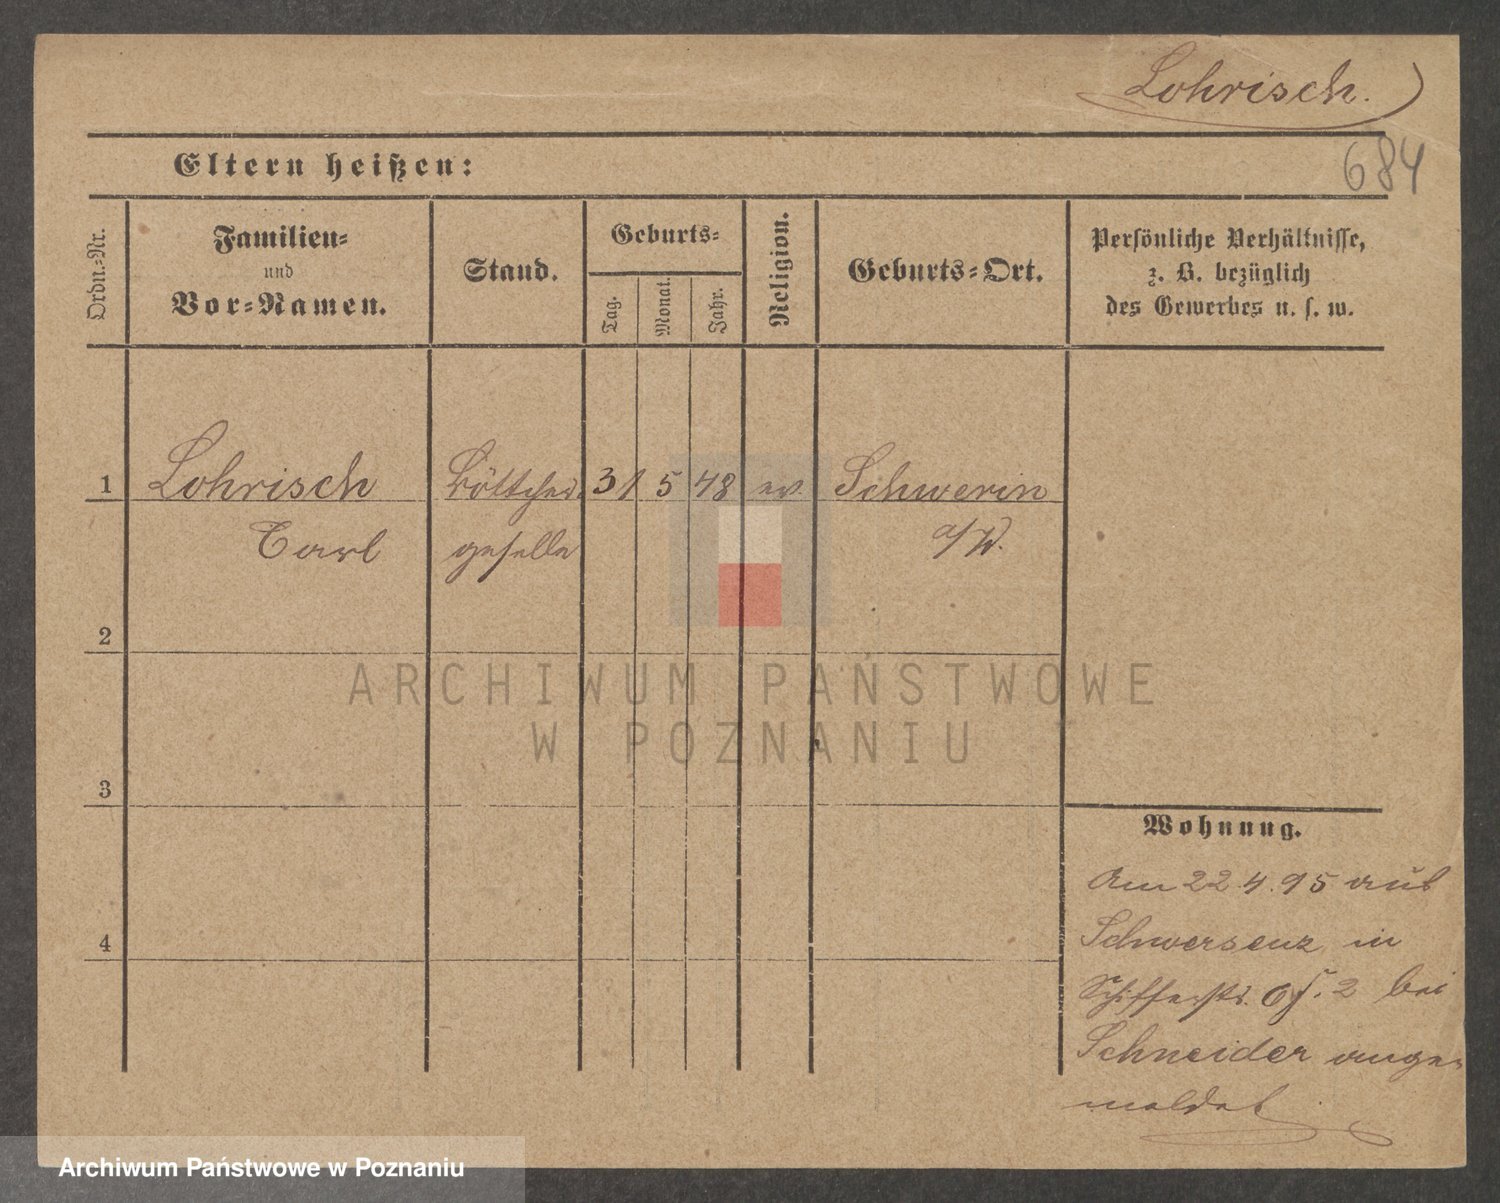 Lohrisch.
684
Eltern heißen:
Ordn.-Nr.
Familien-
und
Vor-Namen.
Stand.
Geburts-
Tag.
Monat.
Jahr.
Religion.
Geburts-Ort.
Persönliche Verhältnisse,
z. B. bezüglich
des Gewerbes u. s. w.
1 Lohrisch Böttcher 31 5 48 ev. Schwerin
Carl geselle a/W.
2
3
4
Wohnung.
Am 22 4. 95 aus
Schwersenz in
Schifferstr. 2 bei
Schneider ange-
meldet
ARCHIWUM PAŃSTWOWE
W POZNANIU
Archiwum Państwowe w Poznaniu